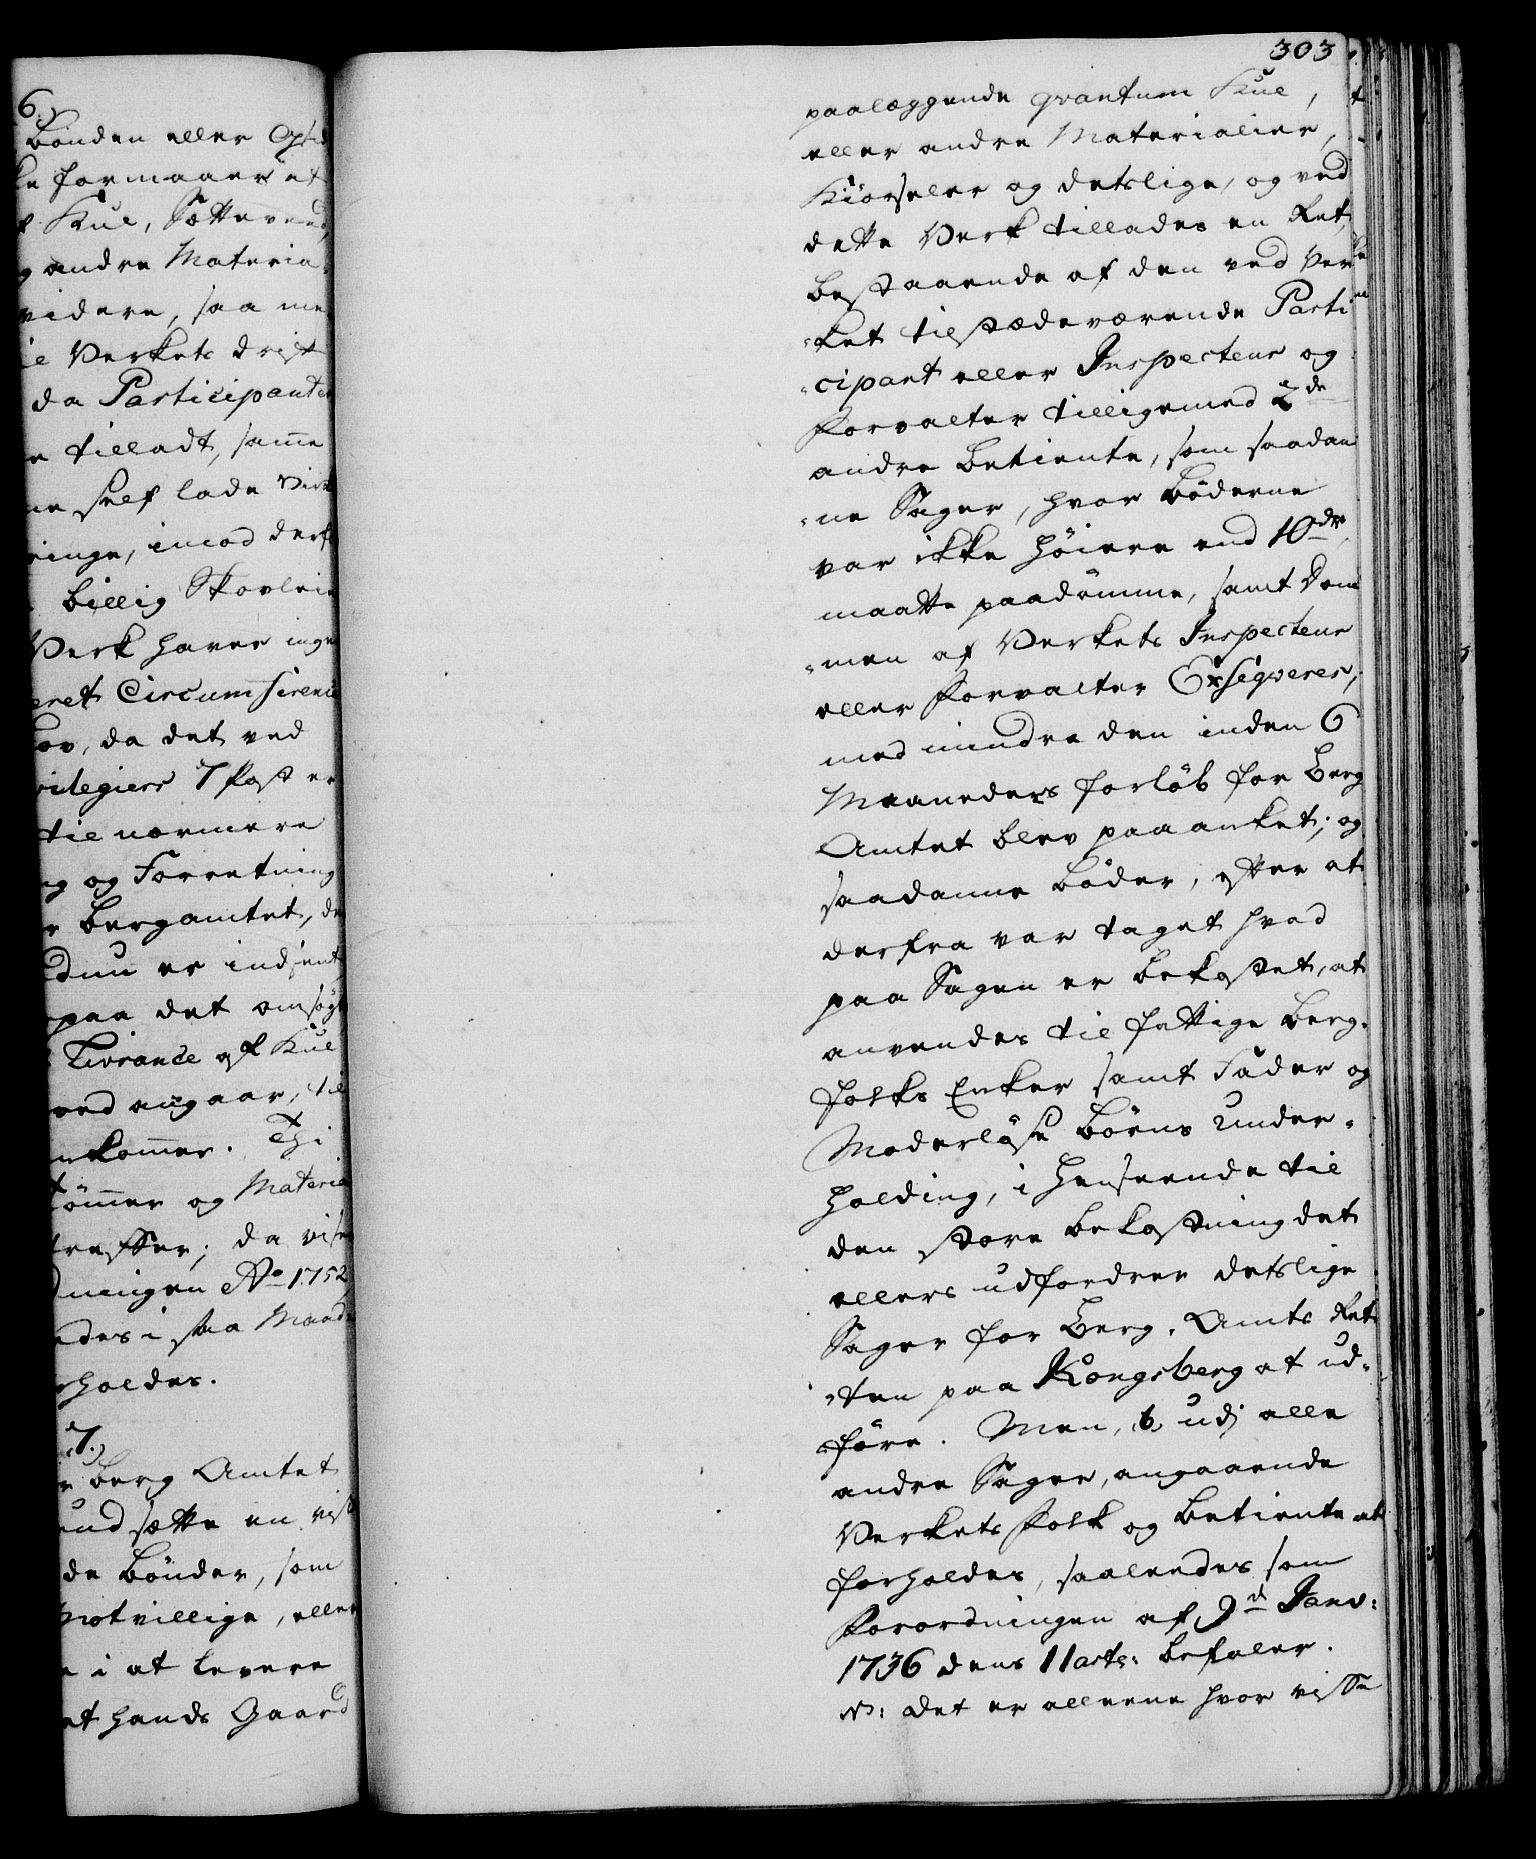 6.
bönden eller Opsid
ke formaaer at
Kul, Sætteveed,
og andre Materia-
videre, saa me
Verkets drift
da Participanter
tilladt, sam̄e
self lade Virk
ringe, imod derfr
billig Skovleie
Verk haver inge
eret Circumference
kov, da det ved
rilegiers 7 Post er
til nærmere
ng og Forretning
Bergamtet, de
Endnu er indsent
paa det omsögte
Livrance af Kul
ved angaar, til
nkom̄er. Thi
töm̄er og Materia
treffer; da vise
dningen Ao 1752
des i saa Maade
rholdes.
7.)
Berg Amtet
und sætte en vis
de Bönder, som
Motvillige, eller
i at levere
at hands Gaard
303
paalæggende qvantum Kul,
eller andre Materialier,
Kiörseler og detslige, og ved
dette Verk tillades en Ret,
bestaaende af den ved Ver-
ket tilstædeværende Parti-
cipant eller Inspecteur og
Forvalter tilligemed 2de
andre Betiente, som saadan-
ne Sager, hvor Böderne
var ikke höiere end 10 dr,
maatte paadömme, samt Dom-
men af Verkets Inspecteur
eller Forvalter Exseqveres,
med mindre den inden 6
Maaneders forlöb for Berg
Amtet blev paaanket; og
saadanne Böder, efter at
derfra var taget hvad
paa Sagen er bekostet, at
anvendes til fattige Berg-
folks Enker samt Fader og
Moderlöse Börns Under-
holding, i henseende til
den store bekostning det
ellers udfordrer detslige
Sager for Berg-Amts Ret-
ten paa Kongsberg at ud-
före. Men, b, udj alle
andre Sager, angaaende
Verkets Folk og Betiente at
forholdes, saaledes som
Forordningen af 9d Janv:
1736 dens 11 art: befaler.
N: Det er allene hvor visse